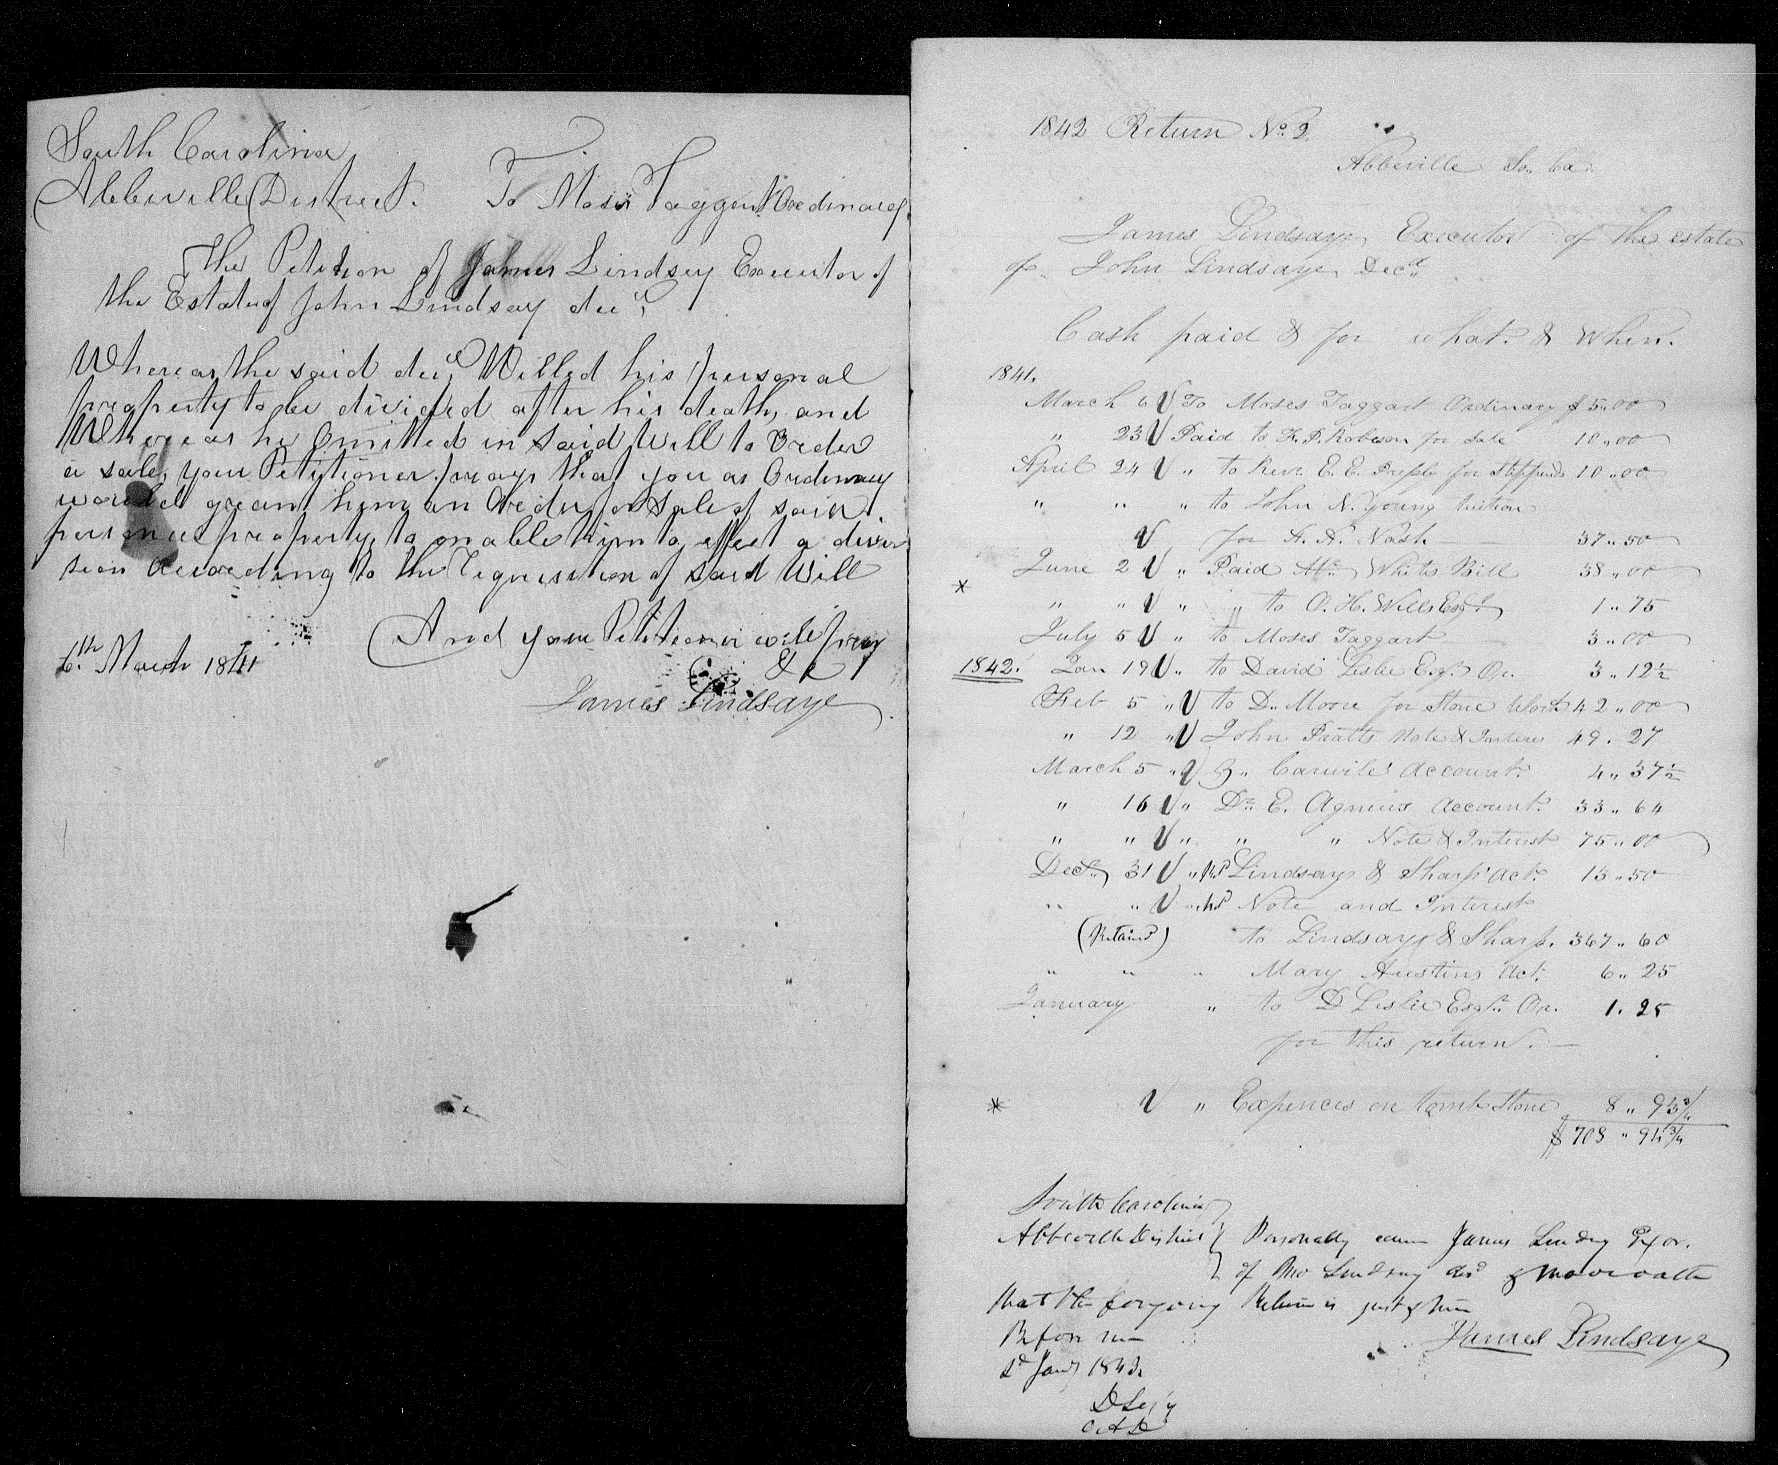 South Carolina
Abbeville District. To Moses Taggart Ordinary
The Petition of James Lindsey Executor of
the Estate of John Lindsay decd,
Whereas the said decd, Willed his personal
property to be divided after his death, and
Whereas he Omitted in said Will to Order
a sale, your Petitioner prays that you as Ordinary
would grant him an Order for Sale of said
personal property, to enable him to effect a divi
sion According to the Requisition of said Will
And your Petitioner will pray
&c
6th March 1841
James Lindsaye
1842 Return No. 2
Abbeville So. Ca.
James Lindsaye, Executor of the estate
of John Lindsaye, Decd
Cash paid & for what & when.
1841.
March 6 V To Moses Taggart Ordinary $ 5 " 00
" 23 V Paid to F. P. Robeson for Sale 10 " 00
April 24 V " to Revr. E. E. Pressly for Stippends 10 " 00
" " " to John N. Young tuition
V for A. A. Nash 37 " 50
* June 2 V " Paid Whites Bill 38 " 00
" " V " " to O. H. Wells Esqr 1 " 75
July 5 V " to Moses Taggart 3 " 00
1842. Jan 19 V " to David Leslie Esqr. Or. 3 " 12½
Feb 5 " V to D. Moore for Stone Work 42 " 00
" 12 " V John Pratts Note & Interes 49 . 27
March 5 " V Carwiles Account 4 " 37½
" 16 V " Dr. E. Agnews Account. 33 " 64
" " V " " " Note & Interest 75 " 00
Decr. 31 V " Lindsay & Sharp Act. 13 " 50
" " V " Note and Interest
(Retaind) to Lindsay & Sharp. 367 " 60
" " " Mary Austins Act. 6 " 25
January " to D Leslie Esqr. Or. 1 . 25
for this return.
* V " Expences on tomb Stone 8 " 93¾
$ 708 " 91¾
South Carolina
Abbeville District } Personally came James Lindsay Exor.
of Jno Lindsay decd & made oath
that the forgoing Return is just & true
Before me
2d Jany 1843
James Lindsaye
O. A. D.